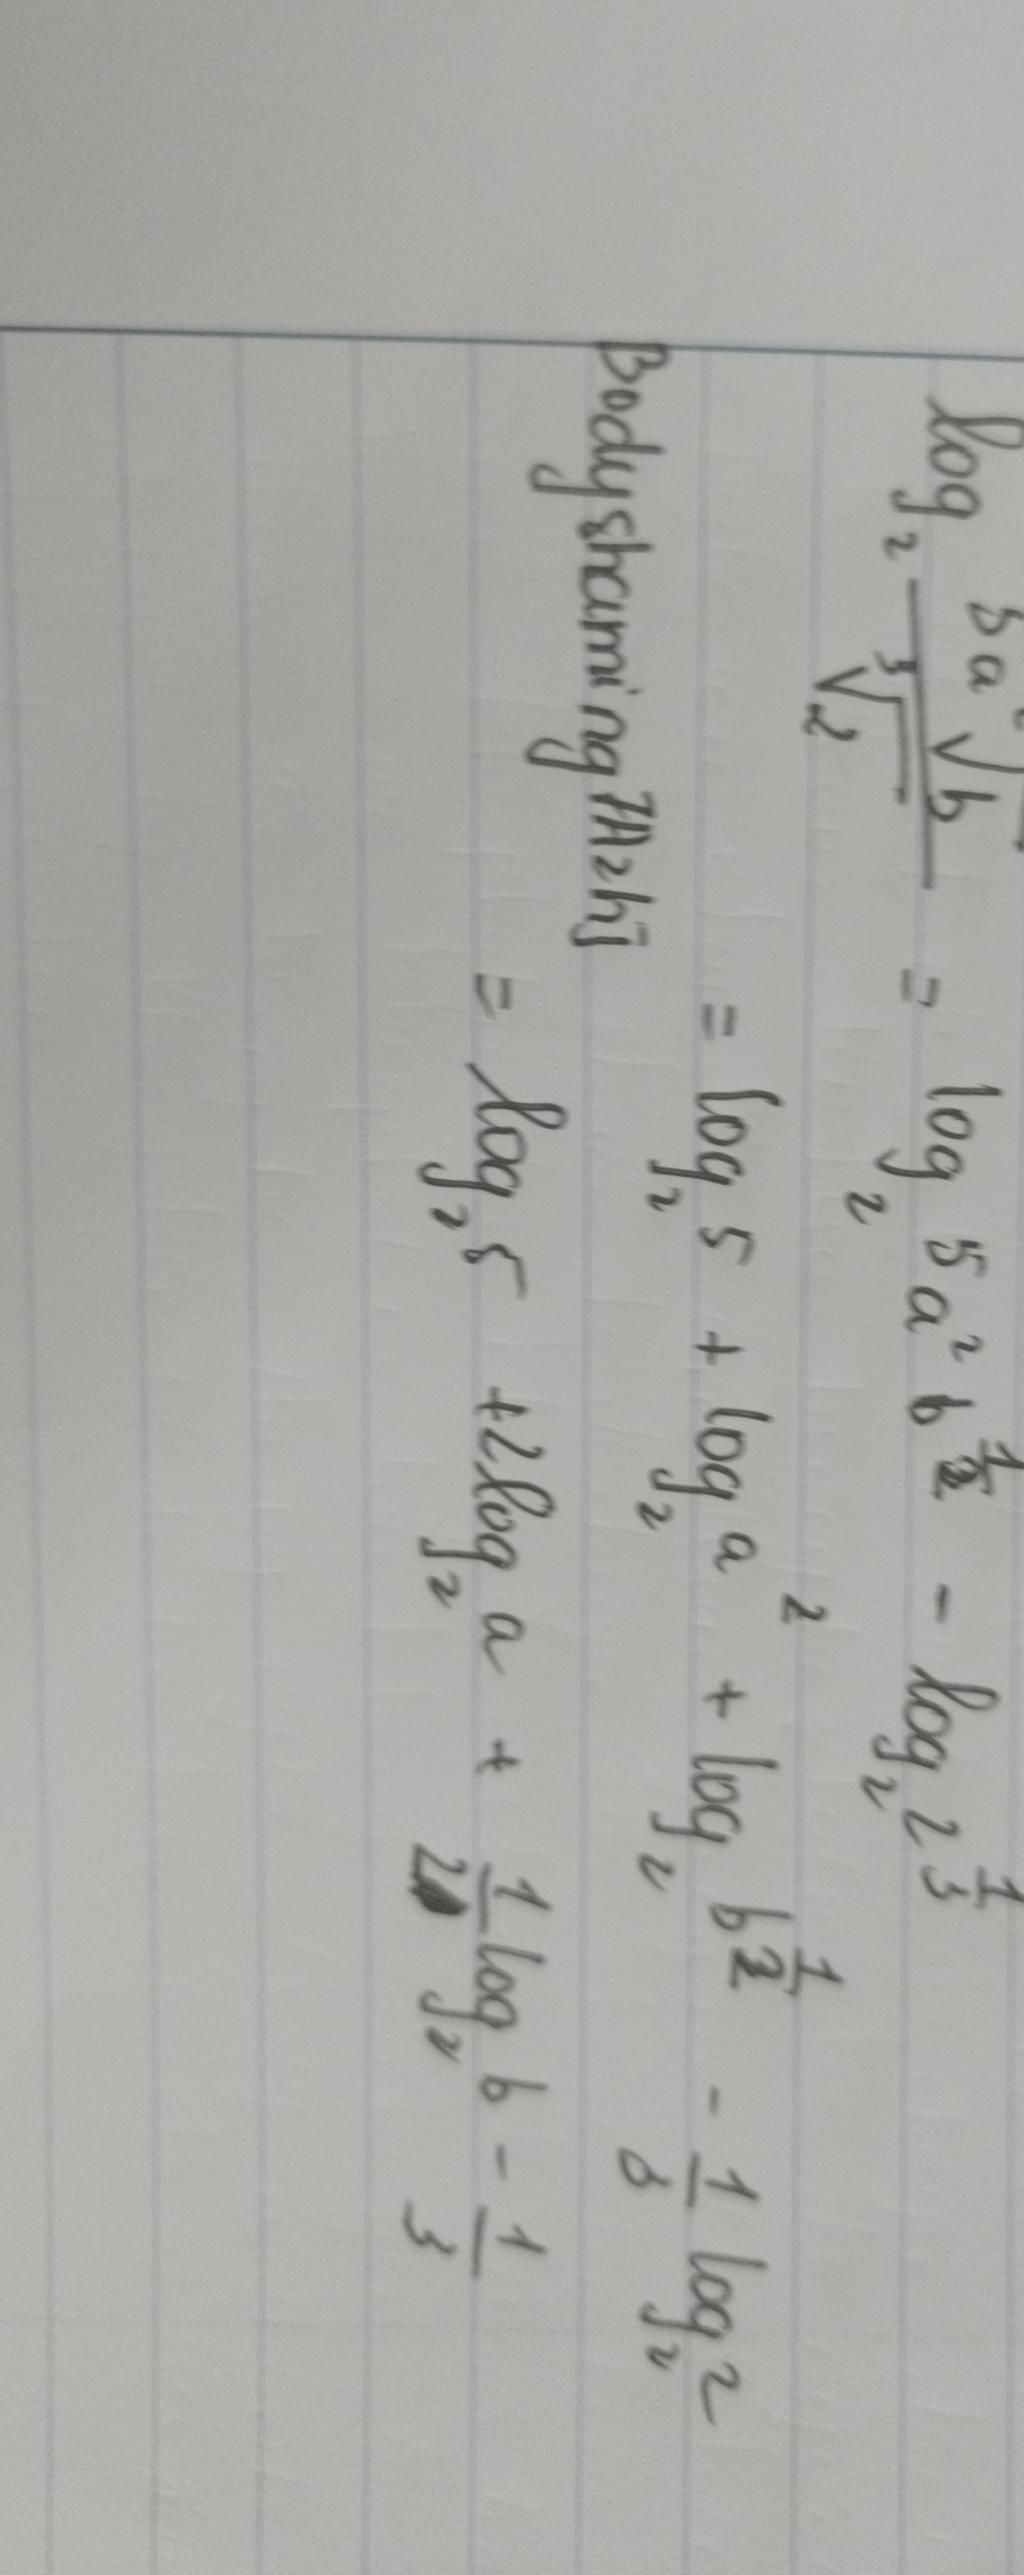 log₂ 5a²√b / ³√2 = log₂ 5a² b^½ - log₂ 2^⅓
= log₂ 5 + log₂ a² + log₂ b^½ - 1/3 log₂ 2
= log₂ 5 + 2log₂ a + 1/2 log₂ b - 1/3